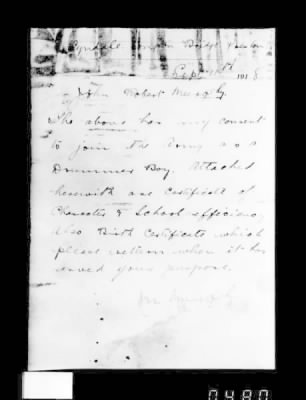 Tyndale, London Bridge
Sept 191 8
John Robert
The above has my consent
to join the Army as a
Drummer Boy. Attached
herewith are Certificate of
Character & School efficiency
Also Birth Certificate which
please return when it has
served your purpose.
0480